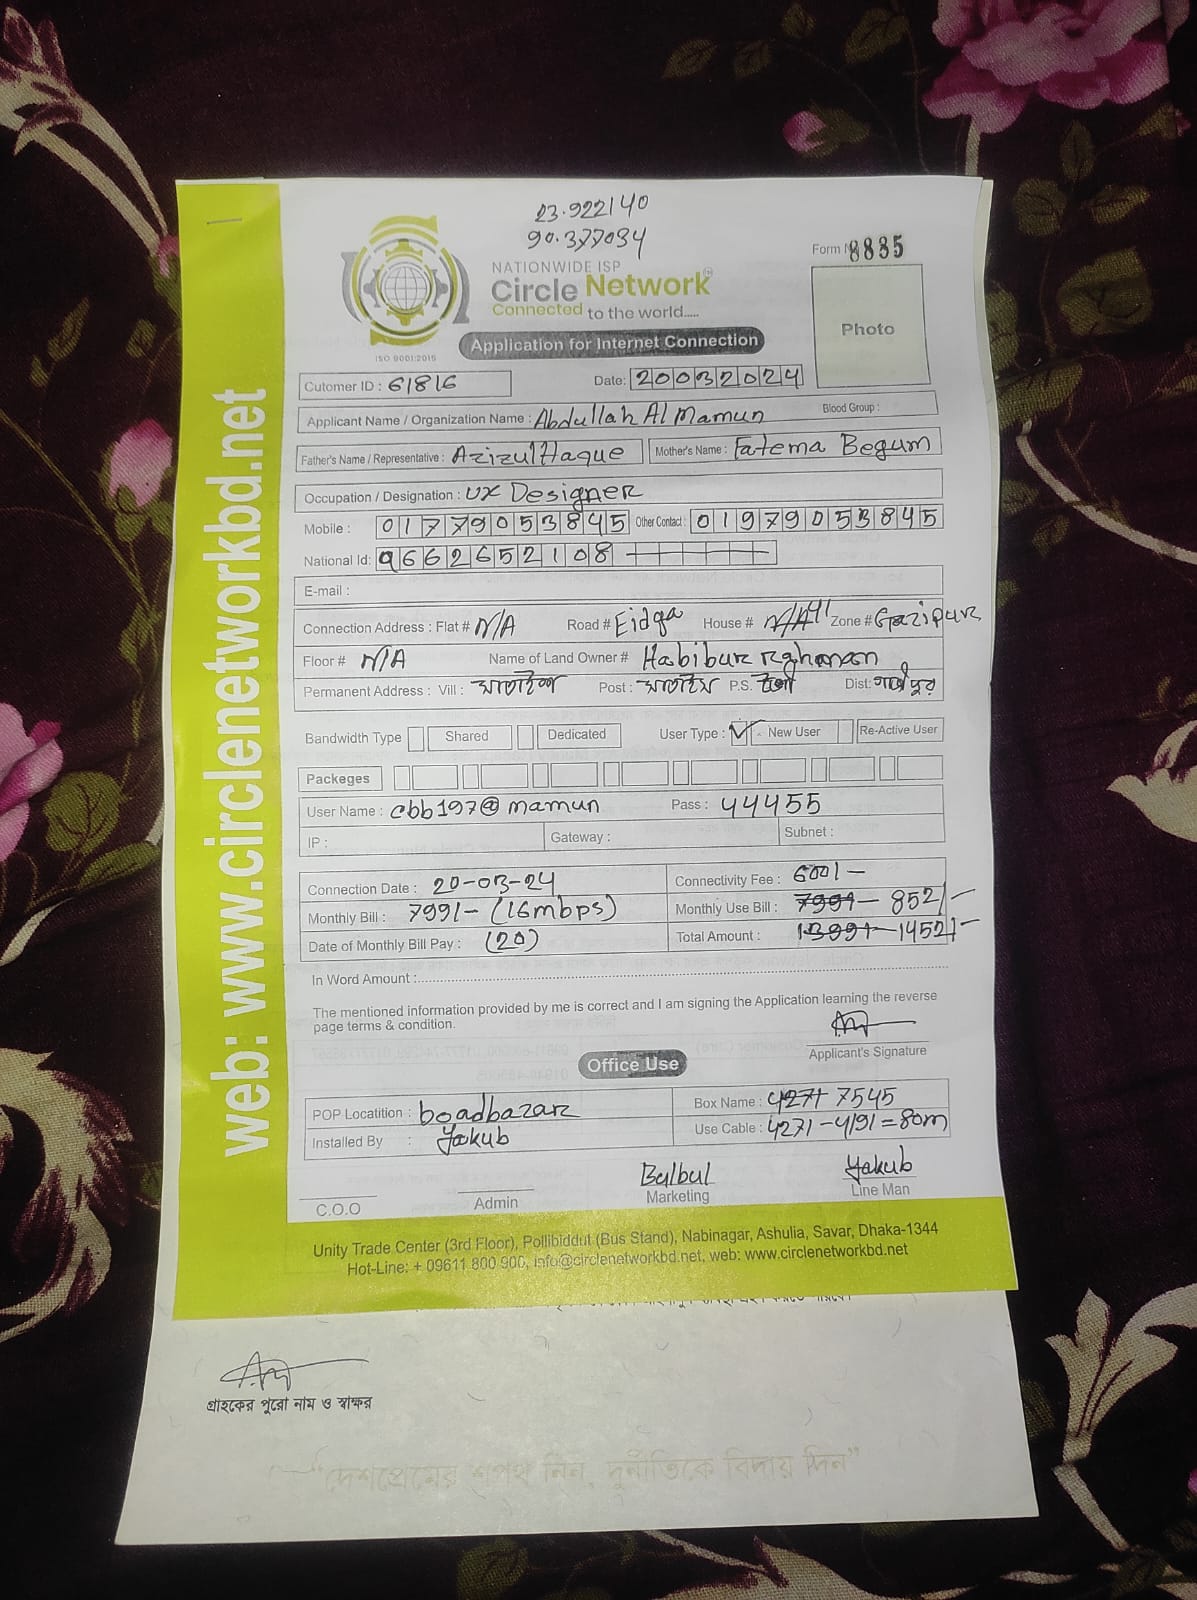 23.922140
90.377034
NATIONWIDE ISP
Circle Network
Connected to the world.....
ISO 9001:2015
Form 8835
Photo
Application for Internet Connection
Cutomer ID : 61816
Date: 20032024
Applicant Name / Organization Name : Abdullah Al Mamun Blood Group :
Father's Name / Representative : Azizul Haque Mother's Name : Fatema Begum
Occupation / Designation : UX Designer
Mobile : 01779053845 Other Contact : 01979053845
National Id: 9662652108
E-mail :
Connection Address : Flat # N/A Road # Eidga House # N/A 41 Zone # Gazipur
Floor # N/A Name of Land Owner # Habibur
Permanent Address : Vill : Post : P.S. Dist: গাজীপুর
Bandwidth Type Shared Dedicated User Type : New User Re-Active User
Packeges
User Name : cbb197@mamun Pass : 44455
IP : Gateway : Subnet :
Connection Date : 20-03-24 Connectivity Fee : 600/-
Monthly Bill : 799/- (16mbps) Monthly Use Bill : 799/- 852/-
Date of Monthly Bill Pay : (20) Total Amount : 1399/- 1452/-
In Word Amount :
The mentioned information provided by me is correct and I am signing the Application learning the reverse
page terms & condition.
Applicant's Signature
Office Use
POP Locatition : boadbazar Box Name : 4271 7545
Installed By : Yakub Use Cable : 4271-4191=80m
C.O.O Admin Bulbul Marketing Yakub Line Man
Unity Trade Center (3rd Floor), Pollibiddut (Bus Stand), Nabinagar, Ashulia, Savar, Dhaka-1344
Hot-Line: + 09611 800 900, info@circlenetworkbd.net, web: www.circlenetworkbd.net
web: www.circlenetworkbd.net
গ্রাহকের পুরো নাম ও স্বাক্ষর
“দেশপ্রেমের শপথ নিন, দুর্নীতিকে বিদায় দিন”